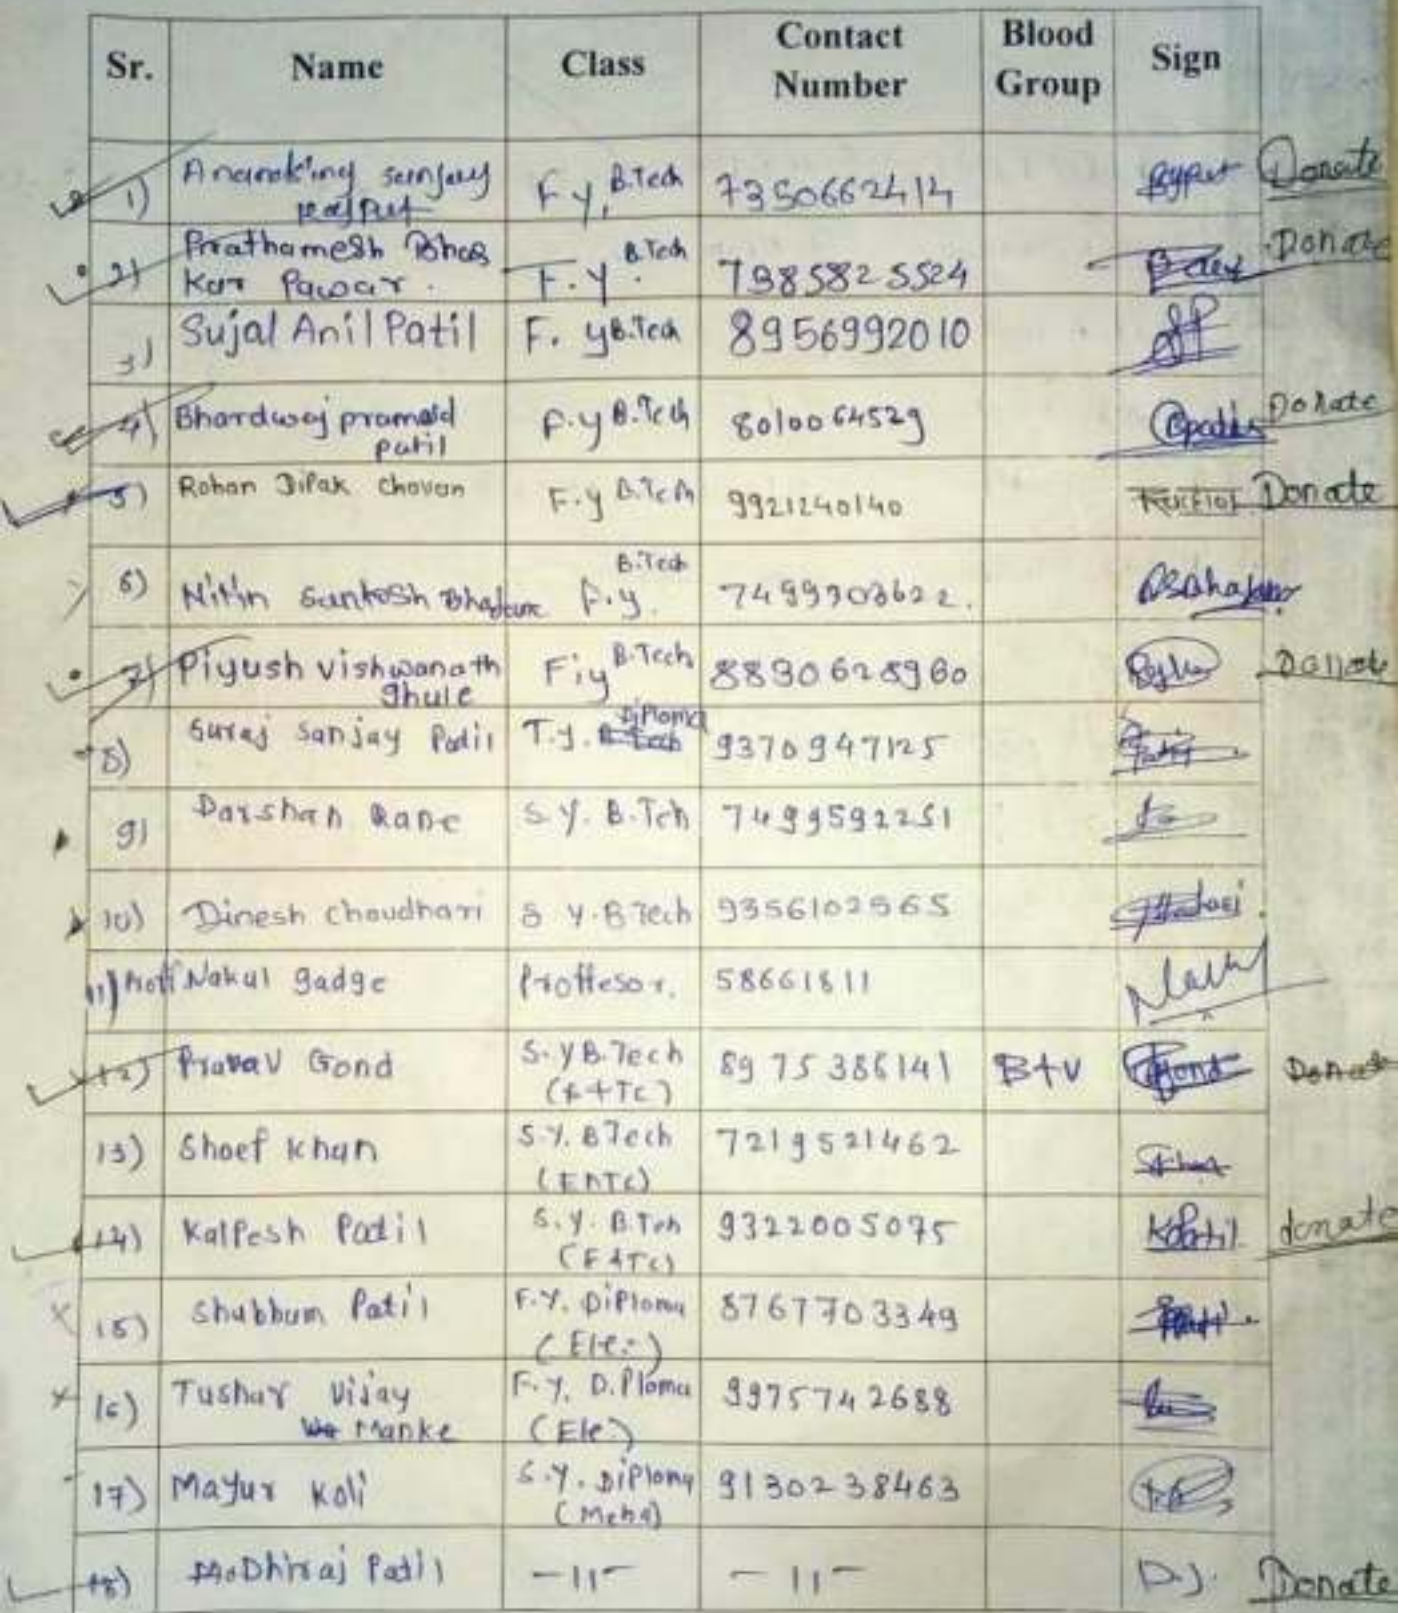 Sr. Name Class Contact Number Blood Group Sign
1) sanjay F.y. B.Tech 7350662414 Donate
2) Prathamesh Bhas
kar Pawar. F.y. B.Tech 7385825524 Donate
3) Sujal Anil Patil F. y B.Tech 8956992010
4) Bhardwaj pramod
patil F.y B.Tech 8010064529 Donate
5) Rohan Dipak chovan F.y B.Tech 9921240140 Donate
6) Nitin Santosh F.y. B.Tech 7499303622.
7) Piyush vishwanath
ghule F.y B.Tech 8830628960 Donate
8) Suraj Sanjay Patil T.y. Diploma 9370947125
9) Darshan Rane S.Y. B.Teh 7499592251
10) Dinesh choudhari S Y.B Tech 9356102565
11) Prof Nakul gadge Proffesor. 58661811
12) Pranav Gond S.YB.Tech
(E+Tc) 8975386141 B+v Gond Donate
13) Shoef khan S.Y. BTech
(EnTc) 7219521462
14) Kalpesh Patil S.Y. B.Teh
(E&Tc) 9322005075 KPatil donate
15) Shubbum Patil F.Y. Diploma
(Ele.) 8767703349
16) Tushar Vijay
Manke F.Y. Diploma
(Ele) 9975742688
17) Mayur Koli S.Y. Diploma
(Meha) 9130238463
18) Dhiraj Patil -11- -11- D.J. Donate